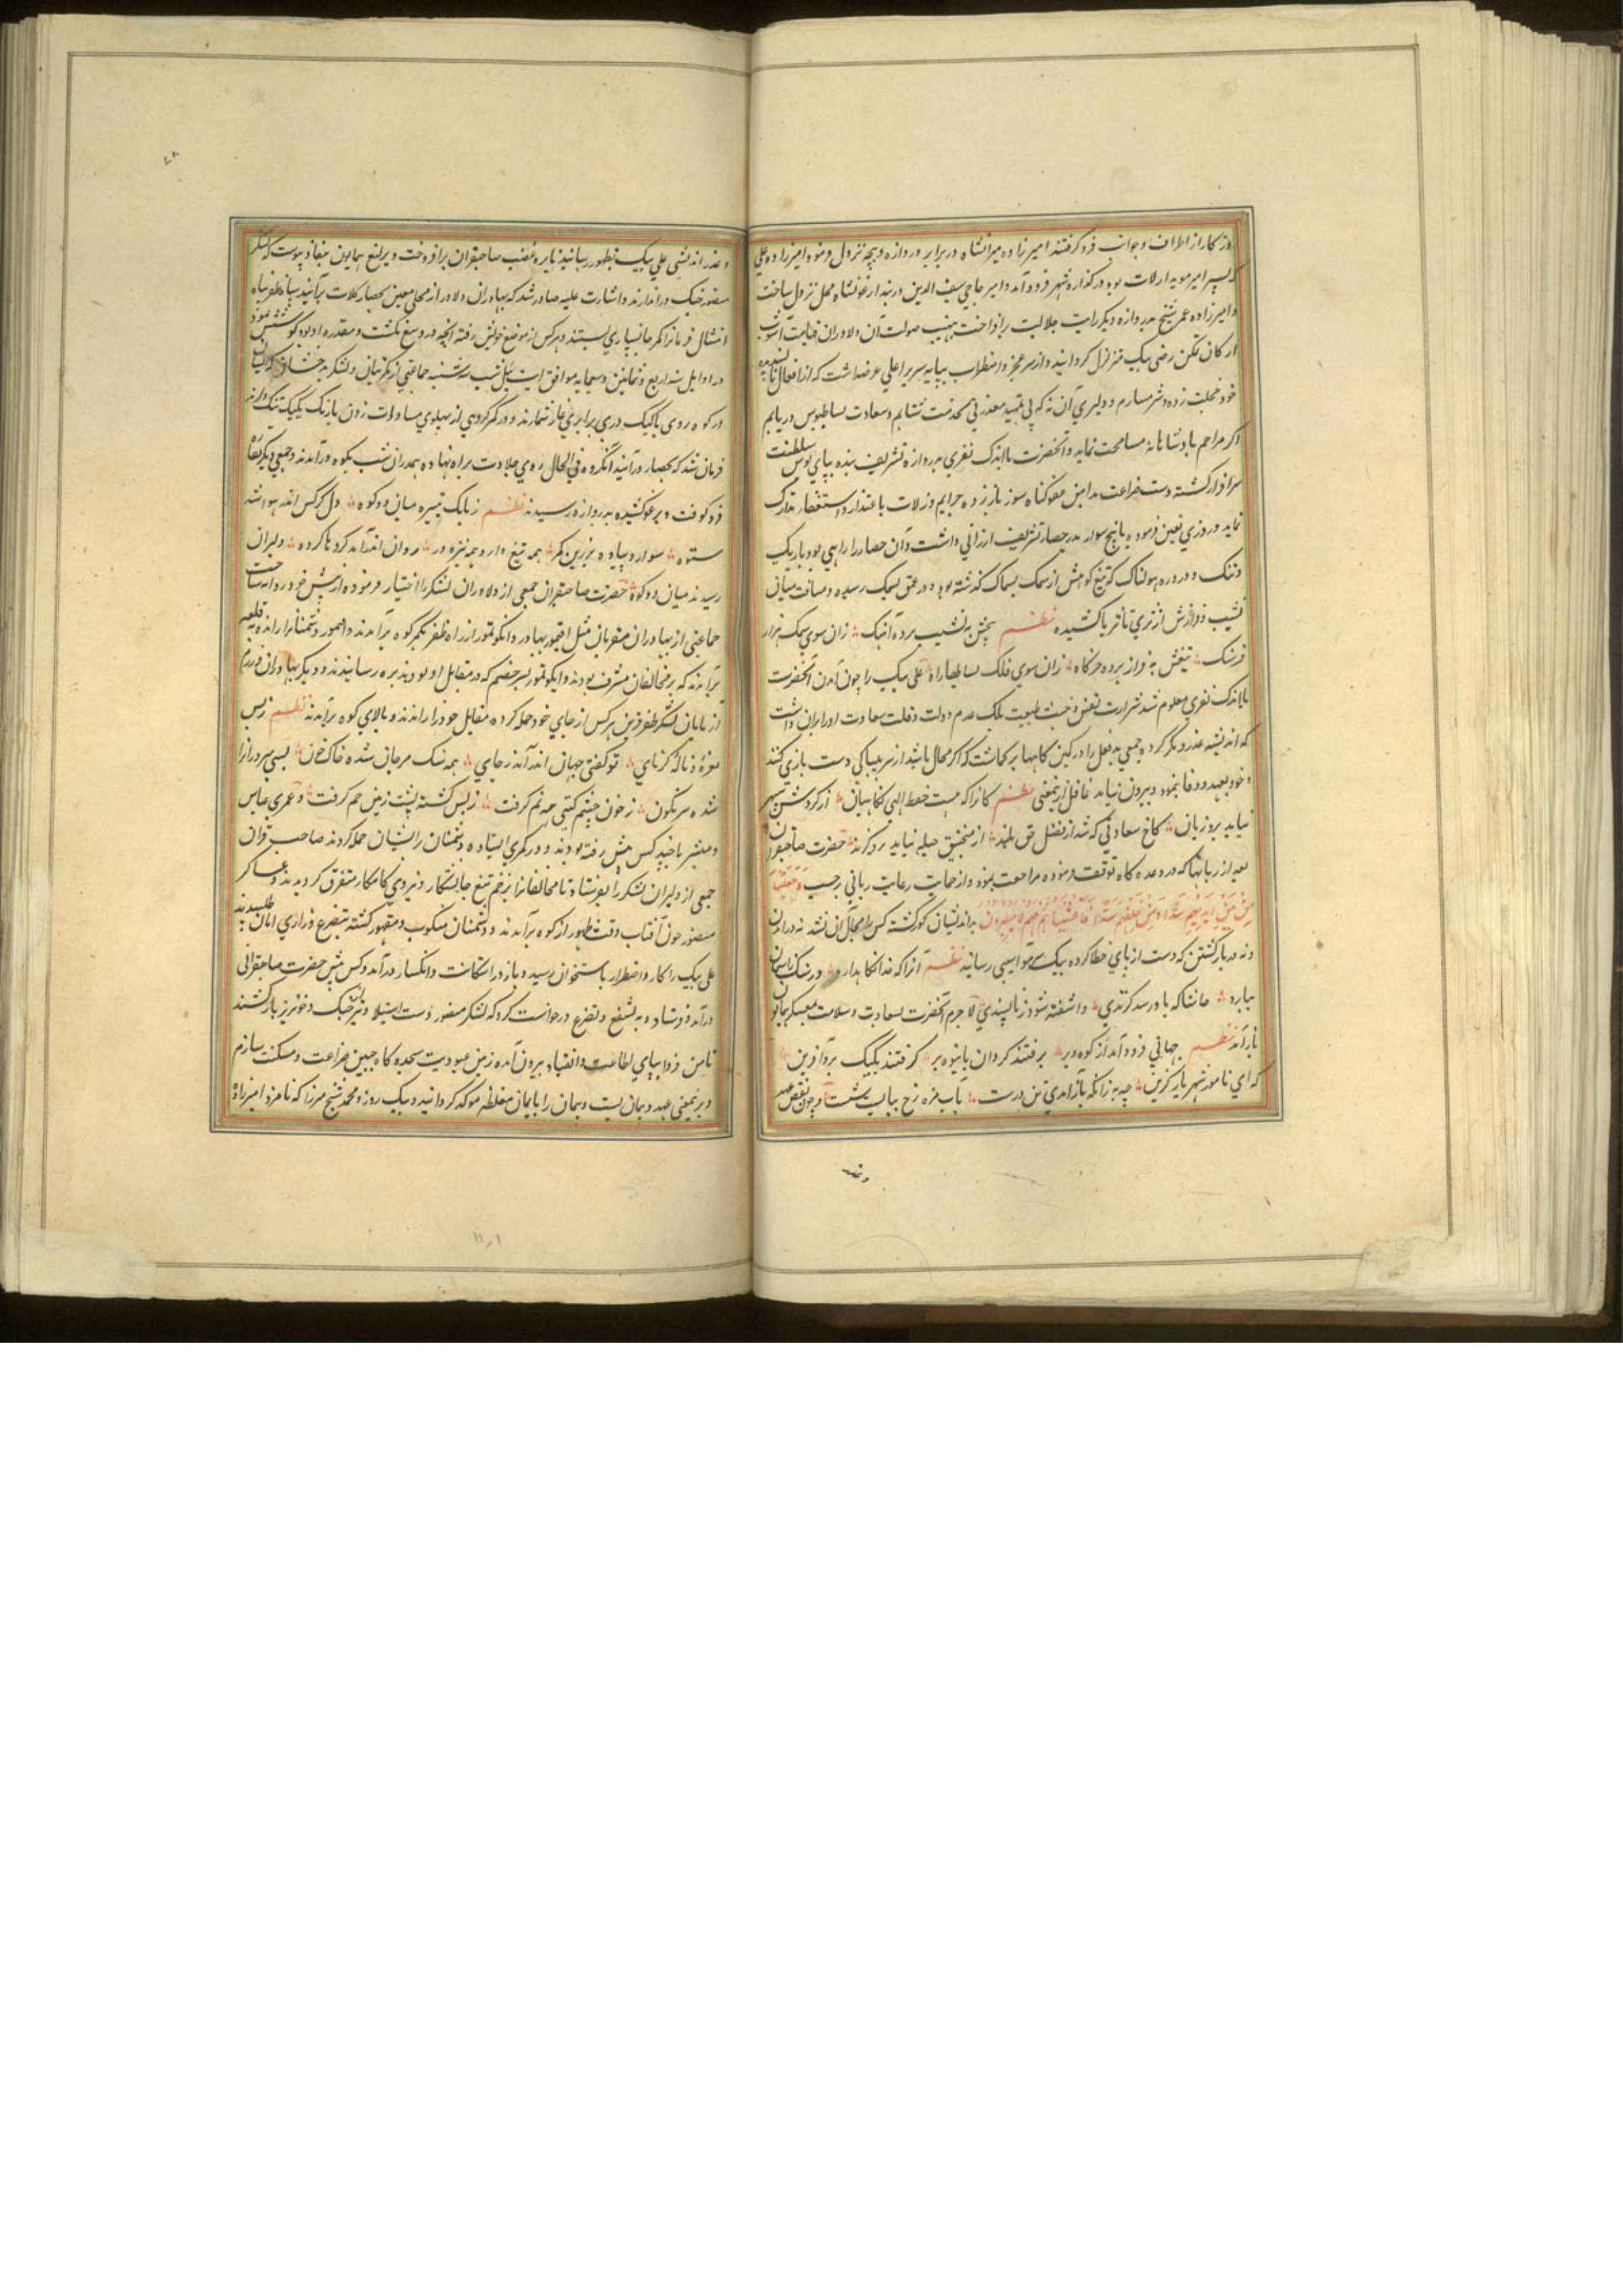 روزکار از اطراف و جوانب فرو کرفتند امیرزاده میرانشاه در برابر دروازه دیچه نزول فرمود و امیرزاده علی
که پسر امیر موید ارلات بود در کذاره شهر فرود آمد و امیر حاجی سیف الدین در بند ارغونشاه محل نزول ساخت
و امیرزاده عمر شیخ بدروازه دیکر رایت جلالت برافراخت نهیب صولت آن دلاوران قیامت آشوب
ارکان تمکن علی بیک متزلزل کردانید و از سر عجز و اضطراب بپایه سریر اعلی عرضه داشت که از افعال ناپسندیده
خود خجلت زده و شرمسارم و دلیری آن نه که بی تمهید معذرتی بخدمت شتابم و سعادت بساط بوس دریابم
اکر مراحم پادشاهانه مسامحت نماید و آنحضرت با اندک نفری بدروازه تشریف بنده بپای بوس سلطنت
سرافراز کشته دست ضراعت بدامن عفو کناه سوز باز زده جرایم و زلات باعتذار و استغفار تدارک
نماید و روزی تعیین فرموده با پنج سوار بدر حصار تشریف ارزانی داشت و آن حصار را راهی بود باریک
و تنک و دره هولناک که تیغ کوهش از سمک بسماک کذشته بود و در عمق بسمک رسیده و مسافت میان
نشیب و فرازش از ثری تا ثریا کشیده نظم بیخش به نشیب برده آهنک زان سوی سمک هزار
فرسنک تیغش به فراز برده خرکاه زان سوی فلک بسالها راه علی بیک را چون آمدن آنحضرت
با اندک نفری معلوم شد شرارت نفس و خبث طبیعت بلک عدم دولت و قلت سعادت او را بران داشت
که اندیشه غدر دیکر کرده جمعی بدفعل را در کمین کاهها بر کماشت که اکر مجال باشد از سر بیباکی دست بازی کنند
و خود بعهد وفا ننمود و بیرون نیامد غافل از معنی نظم کانرا که هست حفظ الهی نکاهبان از کردش سپهر
نیاید بروزیان کاخ سعادتی که شد از فضل حق بلند از منجنیق حیله نیاید برو کزند حضرت صاحبقران
بعد از زمانیکه در وعده کاه توقف فرموده مراجعت نمود و از حمایت رعایت ربانی بر حسب وَجَعَلْنَا
مِنْ بَيْنِ أَيْدِيهِمْ سَدًّا وَمِنْ خَلْفِهِمْ سَدًّا فَأَغْشَيْنَاهُمْ فَهُمْ لَا يُبْصِرُونَ بداندیشان کور کشته کس را مجال آن نشد نه در آمدن
و نه در بازکشتن که دست از پای خطا کرده بیک سر مو آسیبی رسانید نظم آنرا که خدا نکاه دارد ور سنک ز آسمان
ببارد حاشا که باو رسد کزندی و آشفته شود ز ناپسندی لاجرم آنحضرت بسعادت و سلامت بمعسکر همایون
باز آمد نظم جهانی فرود آمد از کوه و بر برفتند کردان بانبوه بر کرفتند یکیک برو آفرین
که ای نامور شهریار کزین چه به زانکه بازآمدی تن درست بآب مژه رخ بباید شست و چون نقض عهد
و غدر اندیشی علی بیک بظهور رسانید نایره غضب صاحبقران برافروخت و یرلیغ همایون بنفاذ پیوست که لشکر
منصور جنک در اندازند و اشارت علیه صادر شد که بهادران دلاور از محلی معین بحصار کلات برآیند سپاه ظفر پناه
امتثال فرمانرا کمر جانسپاری بستند و هر کس از موضع خویش رفته آنچه در وسع مکنت و مقدره او بود کوشش نمود
در اوایل سنه اربع و ثمانین و سبعمایه موافق ایت ئیل شب سه شنبه جماعتی از مکریتیان و لشکر بدخشان که ایشان
در کوه روی باکبک دری برابری غاز شمارند و در کمر کروهی از پهلوی مساوات زدن با زنک یکیک تنک دارند
فرمان شد که بحصار درآیند آنکروه فی الحال روی جلادت براه نهاده همدران شب بکوه درآمدند و جمعی دیکر نقاره
فرو کوفت و برغو کشیده بدروازه رسیدند نظم ز بانک تبیره میان دو کوه دل کرکس اندر هوا شد
ستوه سوار و پیاده بزرین کمر همه تیغ دار و همه نیزه ور روان اندرآمد کردها کرده دلیران
رسیدند میان دو کوه حضرت صاحبقران جمعی از دلاوران لشکر را اختیار فرموده از پیش خود روانه ساخت
جماعتی از بهادران مقربان مثل اقتمور بهادر و انکوتمور از راه ظفر بکمر کوه برآمدند و اقتمور دشمنانرا رانده بقلعه
برآمدند که بر مخالفان مشرف بودند و ایکوتمور بسر خصم که در مقابل او بودند بره رسانیدند و دیکر بهادران رزم
از پایان لشکر ظفر قرین هر کس از جای خود حمله کرده مقابل خود را راندند و بالای کوه برآمدند نظم ز بس
نعره و ناله کرنای تو کفتی جهان اندر آمد ز جای همه سنک مرجان شده خاک خون بسی سروران را
شده سرنکون ز خون چشم کیتی همه نم کرفت ز بس کشته پشت زمین خم کرفت و عمری عباس
و مبشر با چند کس پیش رفته بودند و در کمری ایستاده دشمنان را ایشان حمله کردند صاحب قران
جمعی از دلیران لشکر را بفرستاد تا مخالفانرا بزخم تیغ جانستکار و نیروی کامکار متفرق کردیدند و عساکر
منصور چون آفتاب وقت ظهور از کوه برآمدند و دشمنان منکوب و مقهور کشته بتضرع و زاری امان طلبیدند
علی بیک را کار و اضطرار باستخوان رسید و باز در استکانت و انکسار درآمد و کس پیش حضرت صاحبقرانی
درآمد فرستاد و به تشفع و تضرع درخواست کرد که لشکر منصور دست استیلا و تیر جنک و خونریز بازکشند
تا من فردا بپای اطاعت و انقیاد بیرون آمده زمین عبودیت سجده کاه جبین ضراعت و مسکنت سازم
و بر نمعنی عهد و پیمان بست و پیمان را بایمان مغلظه موکد کردانید و بیک روز و محمد شیخ میرزا که نامزد امیرزاده